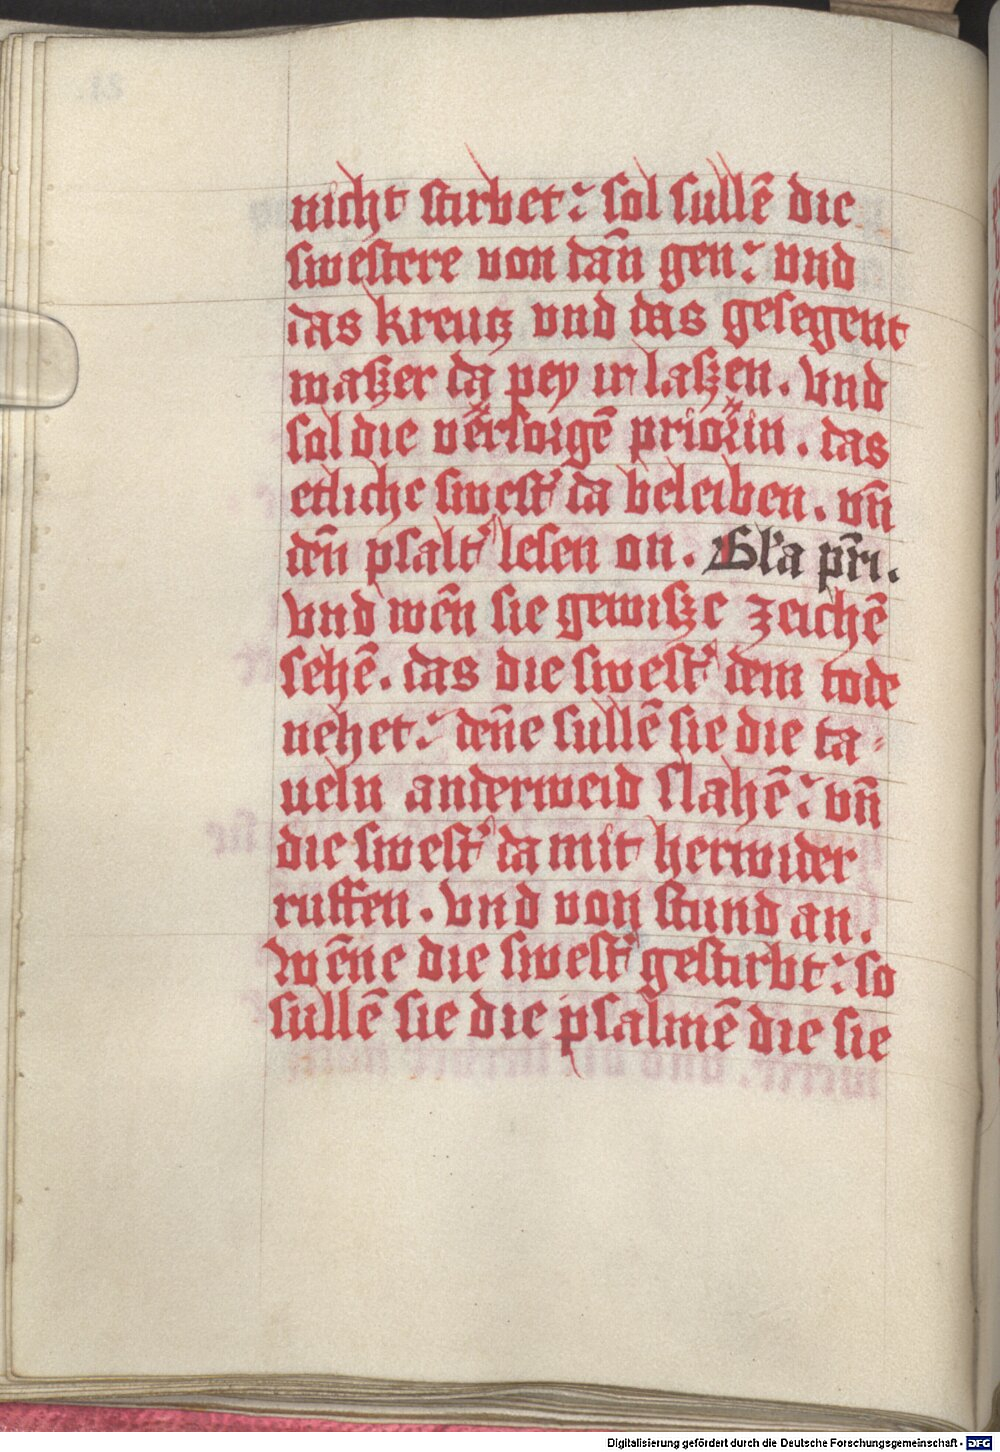 nicht stirbet: sol sullē die
swestere von dañ gen: vnd
das kreutz vnd das gesegent
waſzer da pey ir laſzen. vnd
sol die versorgē priorin. das
etliche swest' da beleiben. vn̄
den̄ psalt' lesen on. Gl'a pr̄i.
vnd wen̄ sie gewiſze zeichē
sehē. das die swest' dem tode
nehet: den̄e sullē sie die ta-
ueln anderweid slahē: vn̄
die swest' da mit herwider
ruffen. vnd von stund an.
wen̄e die swest' gestirbt: so
sullē sie die psalmē die sie
Digitalisierung gefördert durch die Deutsche Forschungsgemeinschaft - DFG